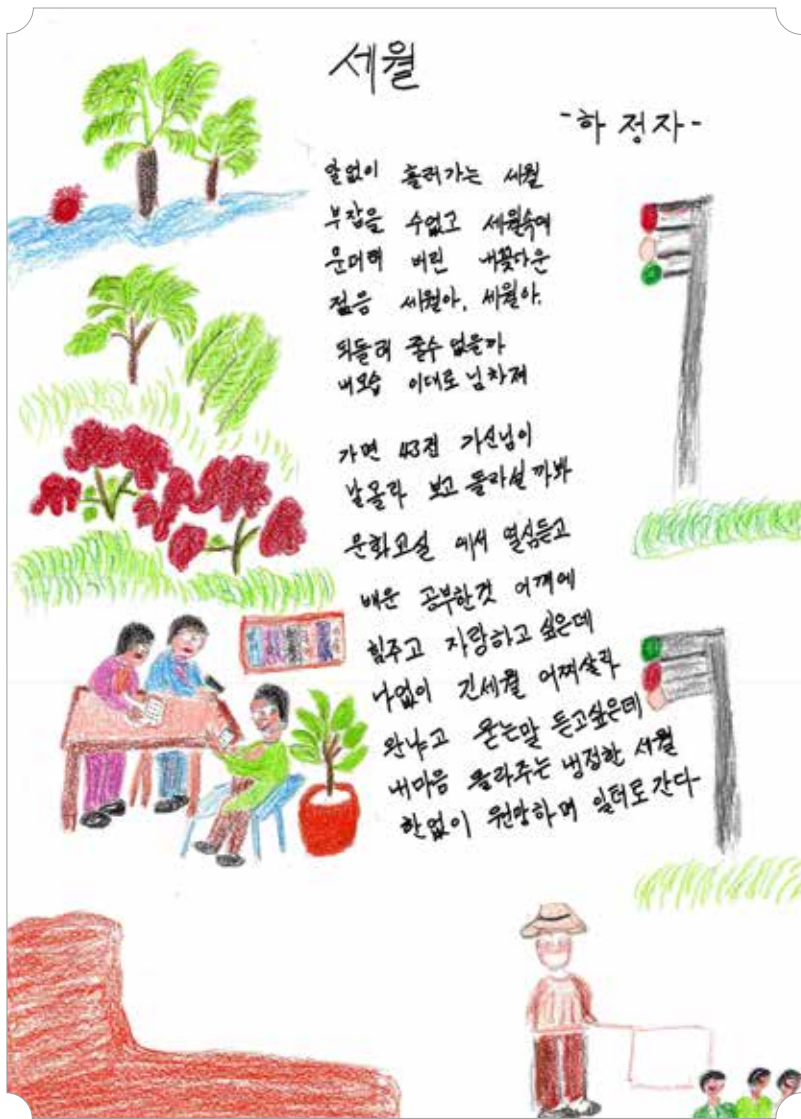 세월
-하 정자-
말없이 흘러가는 세월
부잡을 수없고 세월속에
묻어버린 내꽃다운
젊음 세월아, 세월아,
되돌려 줄수 없을까
내모습 이대로 님찾져
가면 43전 가신님이
날몰라 보고 돌아설 까봐
문화교실 에서 열심듣고
배운 공부한것 어깨에
힘주고 자랑하고 싶은데
나없이 긴세월 어찌살라
완냐고 묻는말 듣고싶은데
내마음 몰라주는 냉정한 세월
한없이 원망하며 일터로 간다